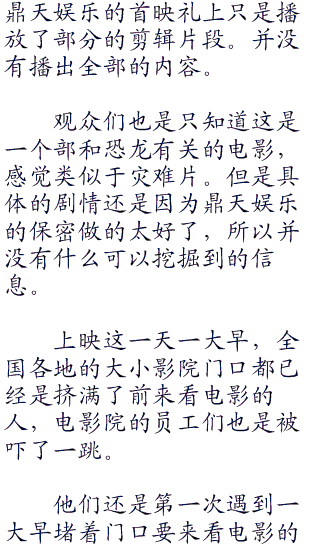 鼎天娱乐的首映礼上只是播
放了部分的剪辑片段。并没
有播出全部的内容。
观众们也是只知道这是
一个部和恐龙有关的电影，
感觉类似于灾难片。但是具
体的剧情还是因为鼎天娱乐
的保密做的太好了，所以并
没有什么可以挖掘到的信
息。
上映这一天一大早，全
国各地的大小影院门口都已
经是挤满了前来看电影的
人，电影院的员工们也是被
吓了一跳。
他们还是第一次遇到一
大早堵着门口要来看电影的